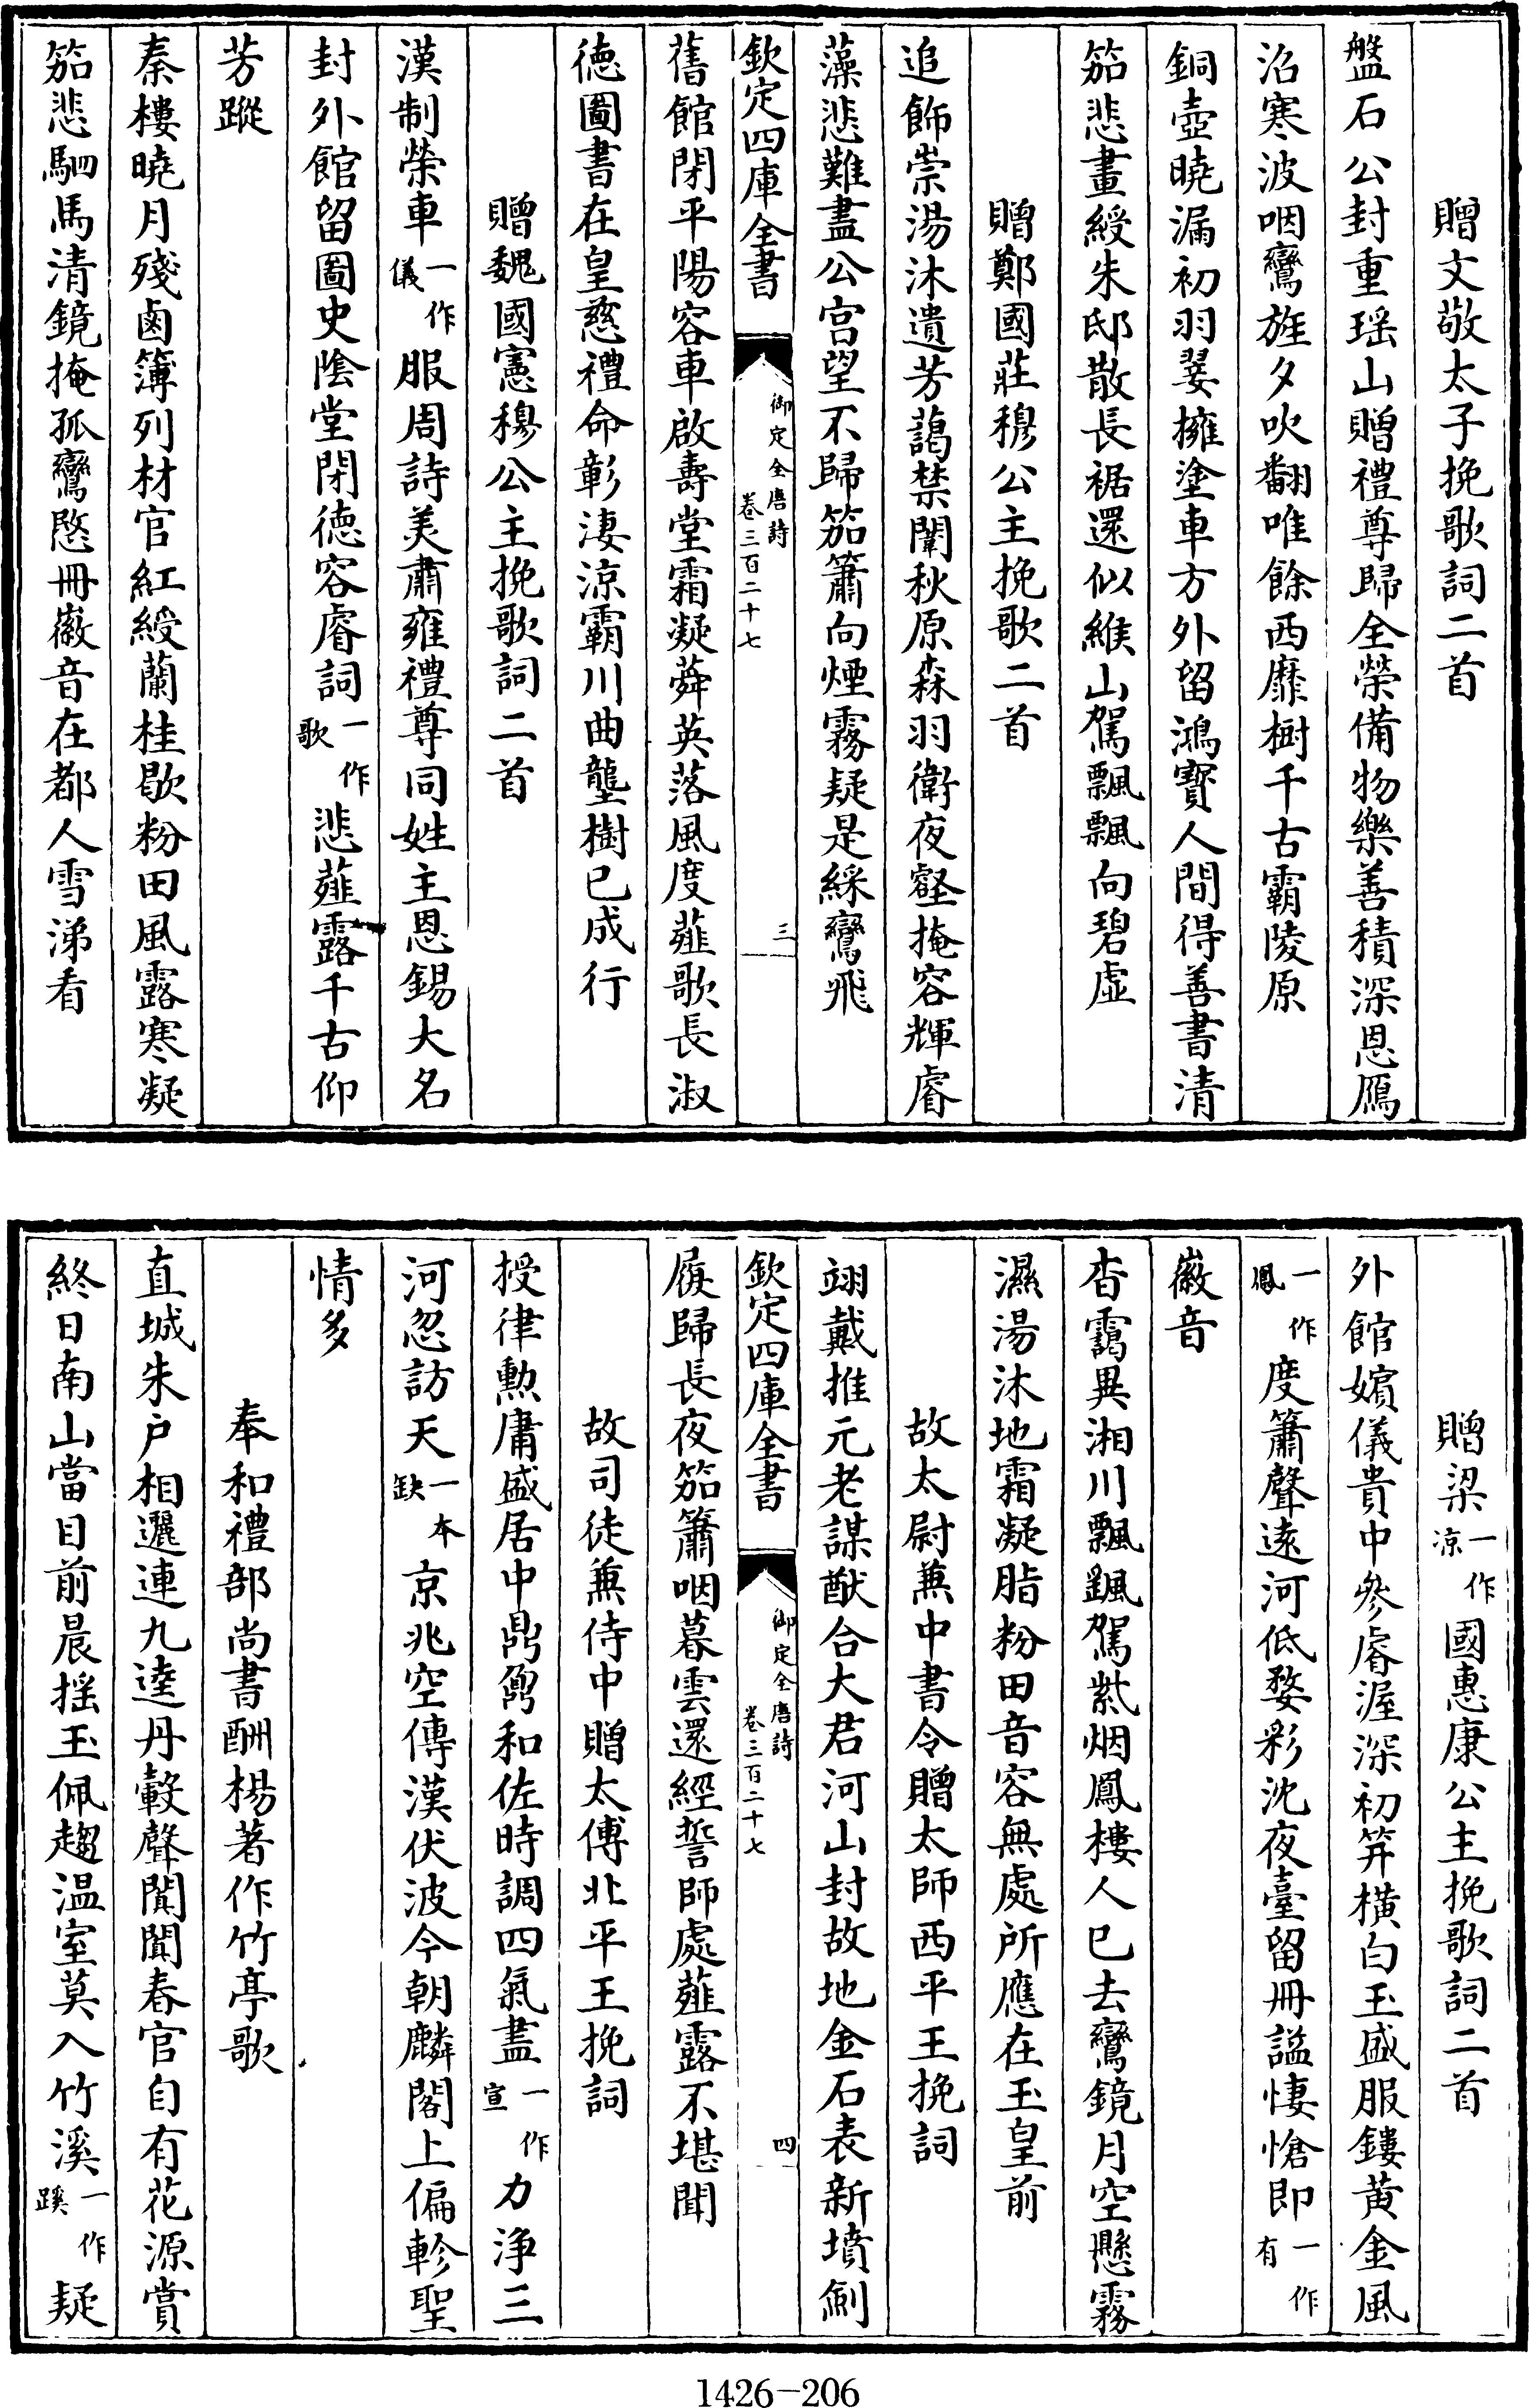 贈文敬太子挽歌詞二首
盤石公封重瑶山贈禮尊歸全榮備物樂善積深恩鴈
沼寒波咽鸞旌夕吹翻唯餘西靡樹千古霸陵原
銅壺曉漏初羽翣擁塗車方外留鴻寶人間得善書清
笳悲畫綬朱邸散長裾還似緱山駕飄飄向碧虛
贈鄭國莊穆公主挽歌二首
追飾崇湯沐遺芳藹禁闈秋原森羽衛夜壑掩容輝睿
藻悲難盡公宮望不歸笳簫向煙霧疑是綵鸞飛
欽定四庫全書 御定全唐詩 卷三百二十七 三
舊館閉平陽容車啟壽堂霜凝蕣英落風度薤歌長淑
徳圖書在皇慈禮命彰淒涼霸川曲壟樹已成行
贈魏國憲穆公主挽歌詞二首
漢制榮車一作儀服周詩美肅雍禮尊同姓主恩錫大名
封外館留圖史陰堂閉徳容睿詞一作歌悲薤露千古仰
芳蹤
秦樓曉月殘鹵簿列材官紅綬蘭桂歇粉田風露寒凝
笳悲駟馬清鏡掩孤鸞愍冊徽音在都人雪涕看
贈梁一作凉國惠康公主挽歌詞二首
外館嬪儀貴中參睿渥深初笄橫白玉盛服鏤黄金風
一作鳳度簫聲遠河低婺彩沈夜臺留冊諡悽愴即一作有
徽音
杳靄異湘川飄飖駕紫烟鳳樓人已去鸞鏡月空懸霧
濕湯沐地霜凝脂粉田音容無處所應在玉皇前
故太尉兼中書令贈太師西平王挽詞
翊戴推元老謀猷合大君河山封故地金石表新墳劍
欽定四庫全書 御定全唐詩 卷三百二十七 四
履歸長夜笳簫咽暮雲還經誓師處薤露不堪聞
故司徒兼侍中贈太傅北平王挽詞
授律勲庸盛居中鼎鼐和佐時調四氣盡一作宣力淨三
河忽訪天一本缺京兆空傳漢伏波今朝麟閣上偏軫聖
情多
奉和禮部尚書酬楊著作竹亭歌
直城朱户相邐連九逵丹轂聲闐闐春官自有花源賞
終日南山當目前晨揺玉佩趨温室莫入竹溪一作蹊疑
1426-206